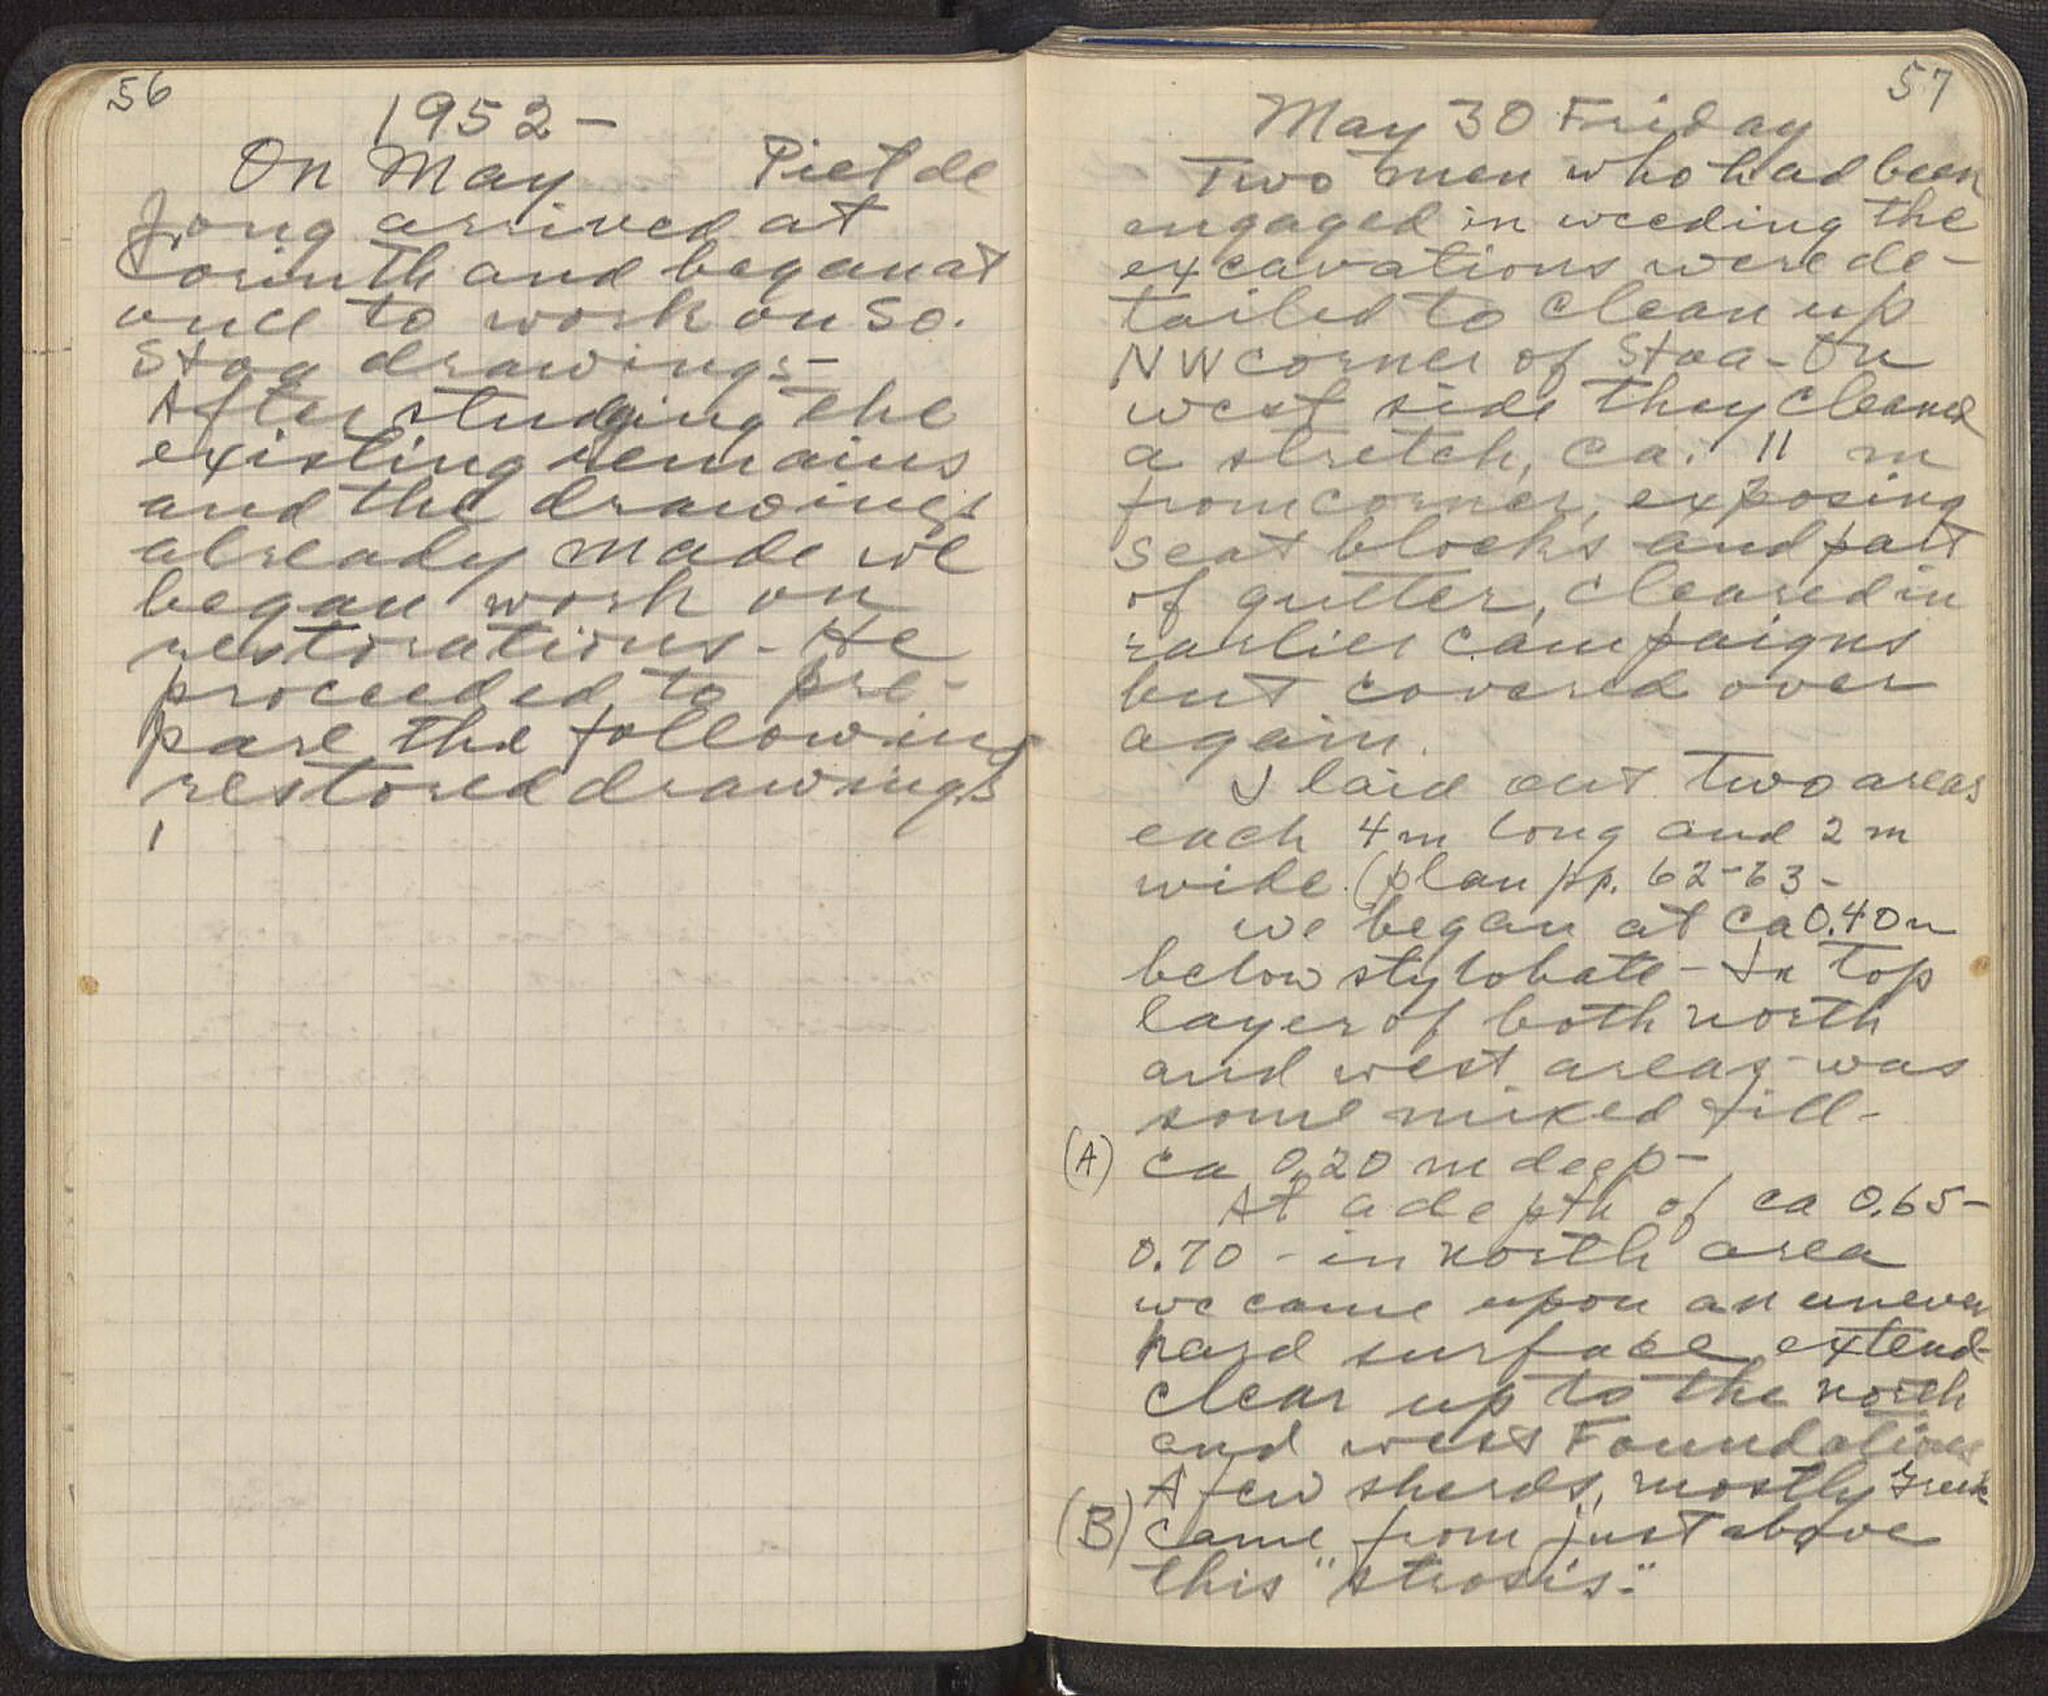 56
1952-
On May Piet de
Jong arrived at
Corinth and began at
once to work on So.
Stoa drawings-
After studying the
existing remains
and the drawings
already made we
began work on
restorations- He
proceeded to pre-
pare the following
restored drawings
1
57
May 30 Friday
Two men who had been
engaged in weeding the
excavations were de-
tailed to clean up
NW corner of Stoa- On
west side they cleaned
a stretch, ca. 11 m
from corner, exposing
seat blocks and part
of gutter, cleared in
earlier campaigns
but covered over
again.
I laid out two areas
each 4 m long and 2 m
wide. (plan pp. 62-63-
we began at ca 0.40 m
below stylobate- In top
layer of both north
and west areas was
some mixed fill-
(A) ca 0.20 m deep-
At a depth of ca 0.65-
0.70 - in north area
we came upon an uneven
hard surface extend-
clear up to the north
and west Foundations
A few sherds, mostly Greek
(B) came from just above
this "strosis."